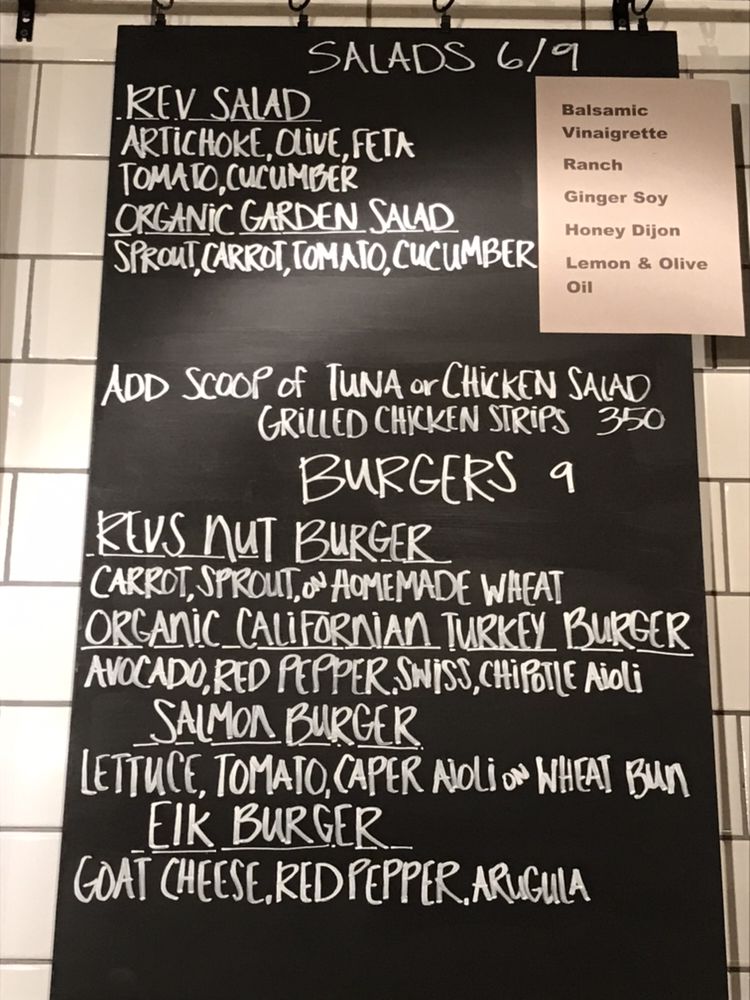 SALADS 6/9
REV SALAD
ARTICHOKE, OLIVE, FETA
TOMATO, CUCUMBER
ORGANIC GARDEN SALAD
SPROUT, CARROT, TOMATO, CUCUMBER
Balsamic
Vinaigrette
Ranch
Ginger Soy
Honey Dijon
Lemon & Olive
Oil
ADD SCOOP of TUNA or CHICKEN SALAD
GRILLED CHICKEN STRIPS 350
BURGERS 9
REVS NUT BURGER
CARROT, SPROUT, ON HOMEMADE WHEAT
ORGANIC CALIFORNIAN TURKEY BURGER
AVOCADO, RED PEPPER, SWISS, CHIPOTLE AIOLI
SALMON BURGER
LETTUCE, TOMATO, CAPER AIOLI ON WHEAT BUN
ElK BURGER
GOAT CHEESE, RED PEPPER, ARUGULA